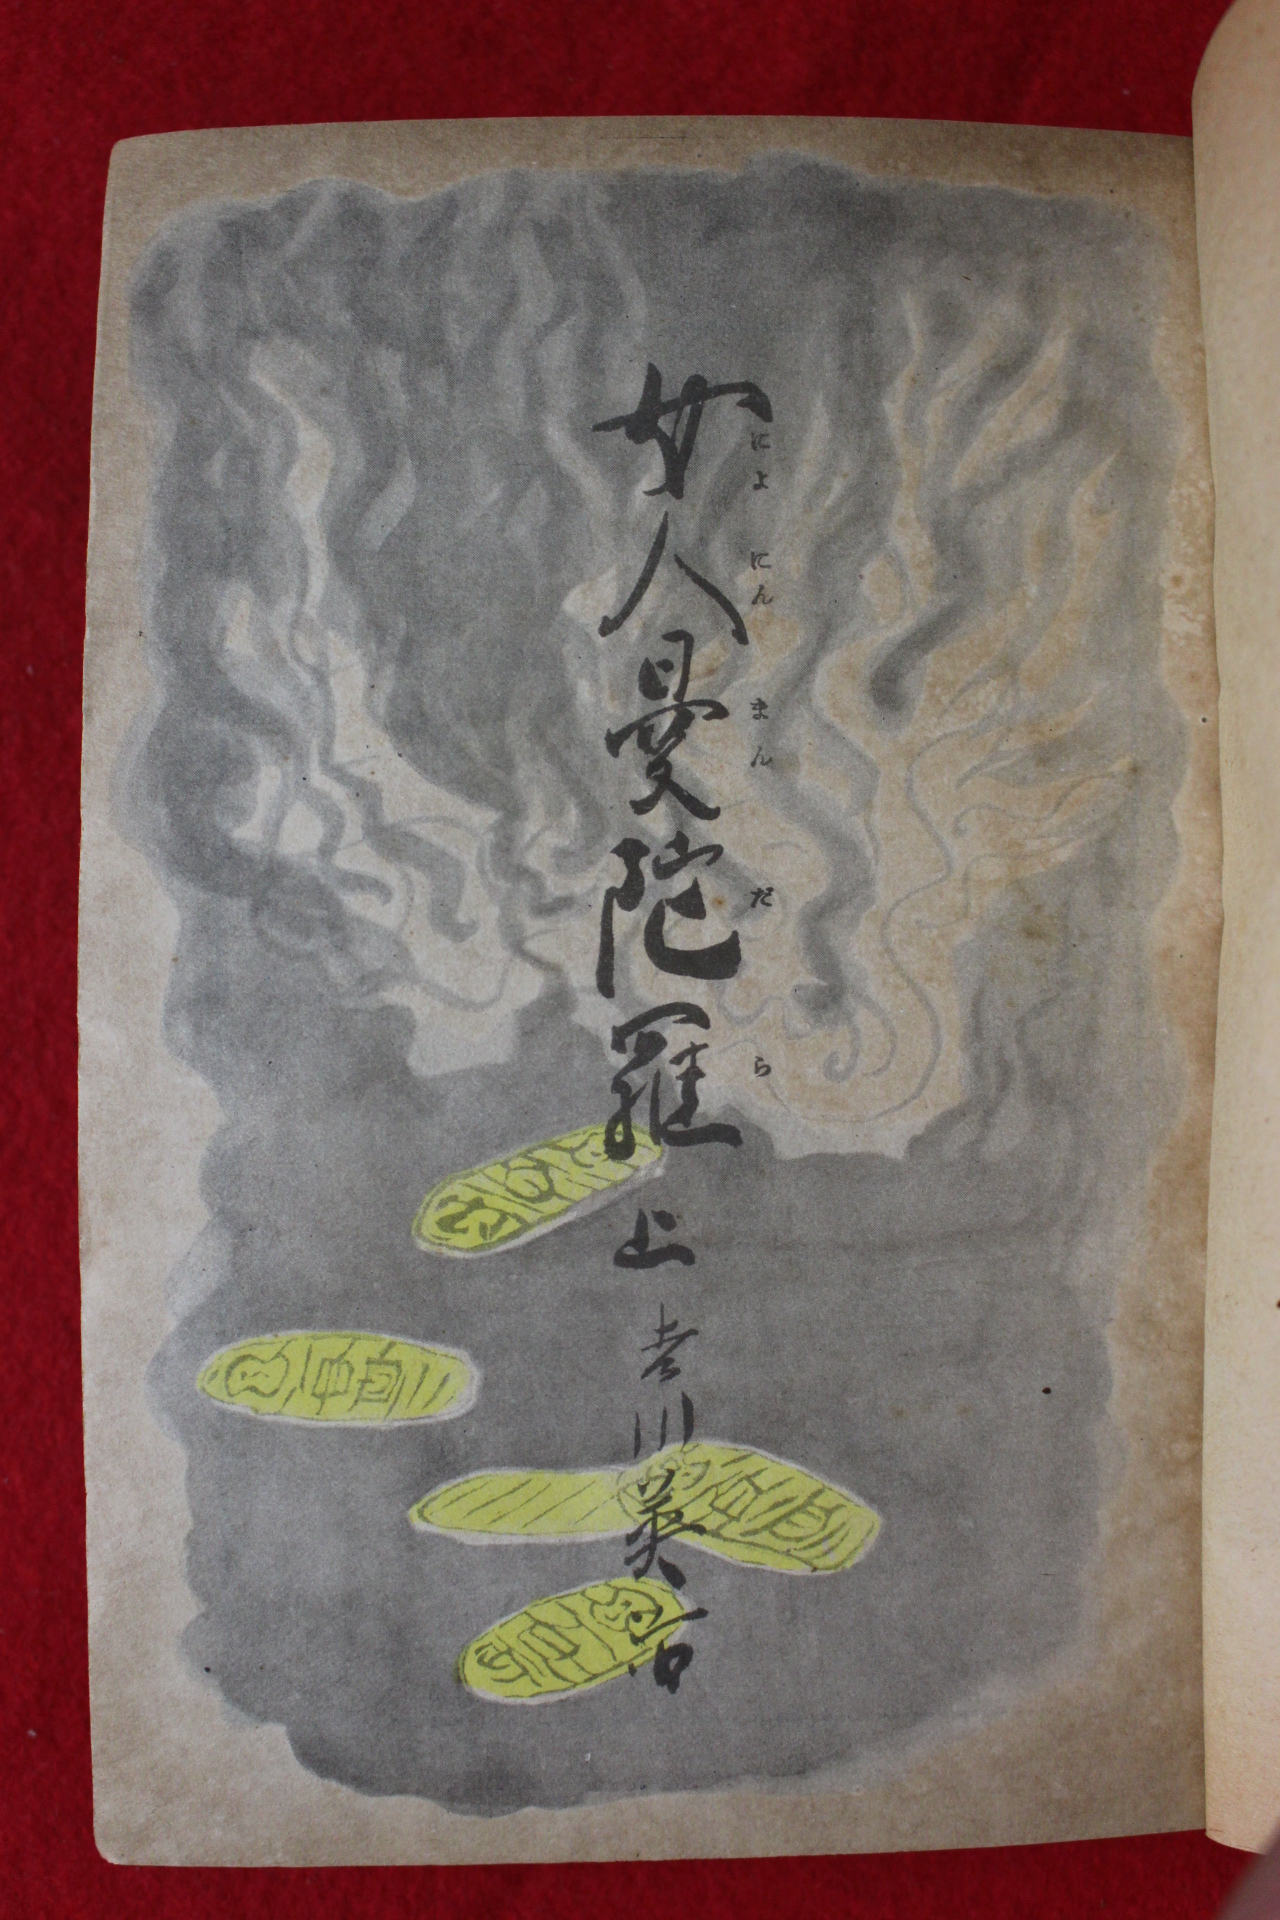 によ にん まん だ ら
女人曼陀羅 上 吉川英治